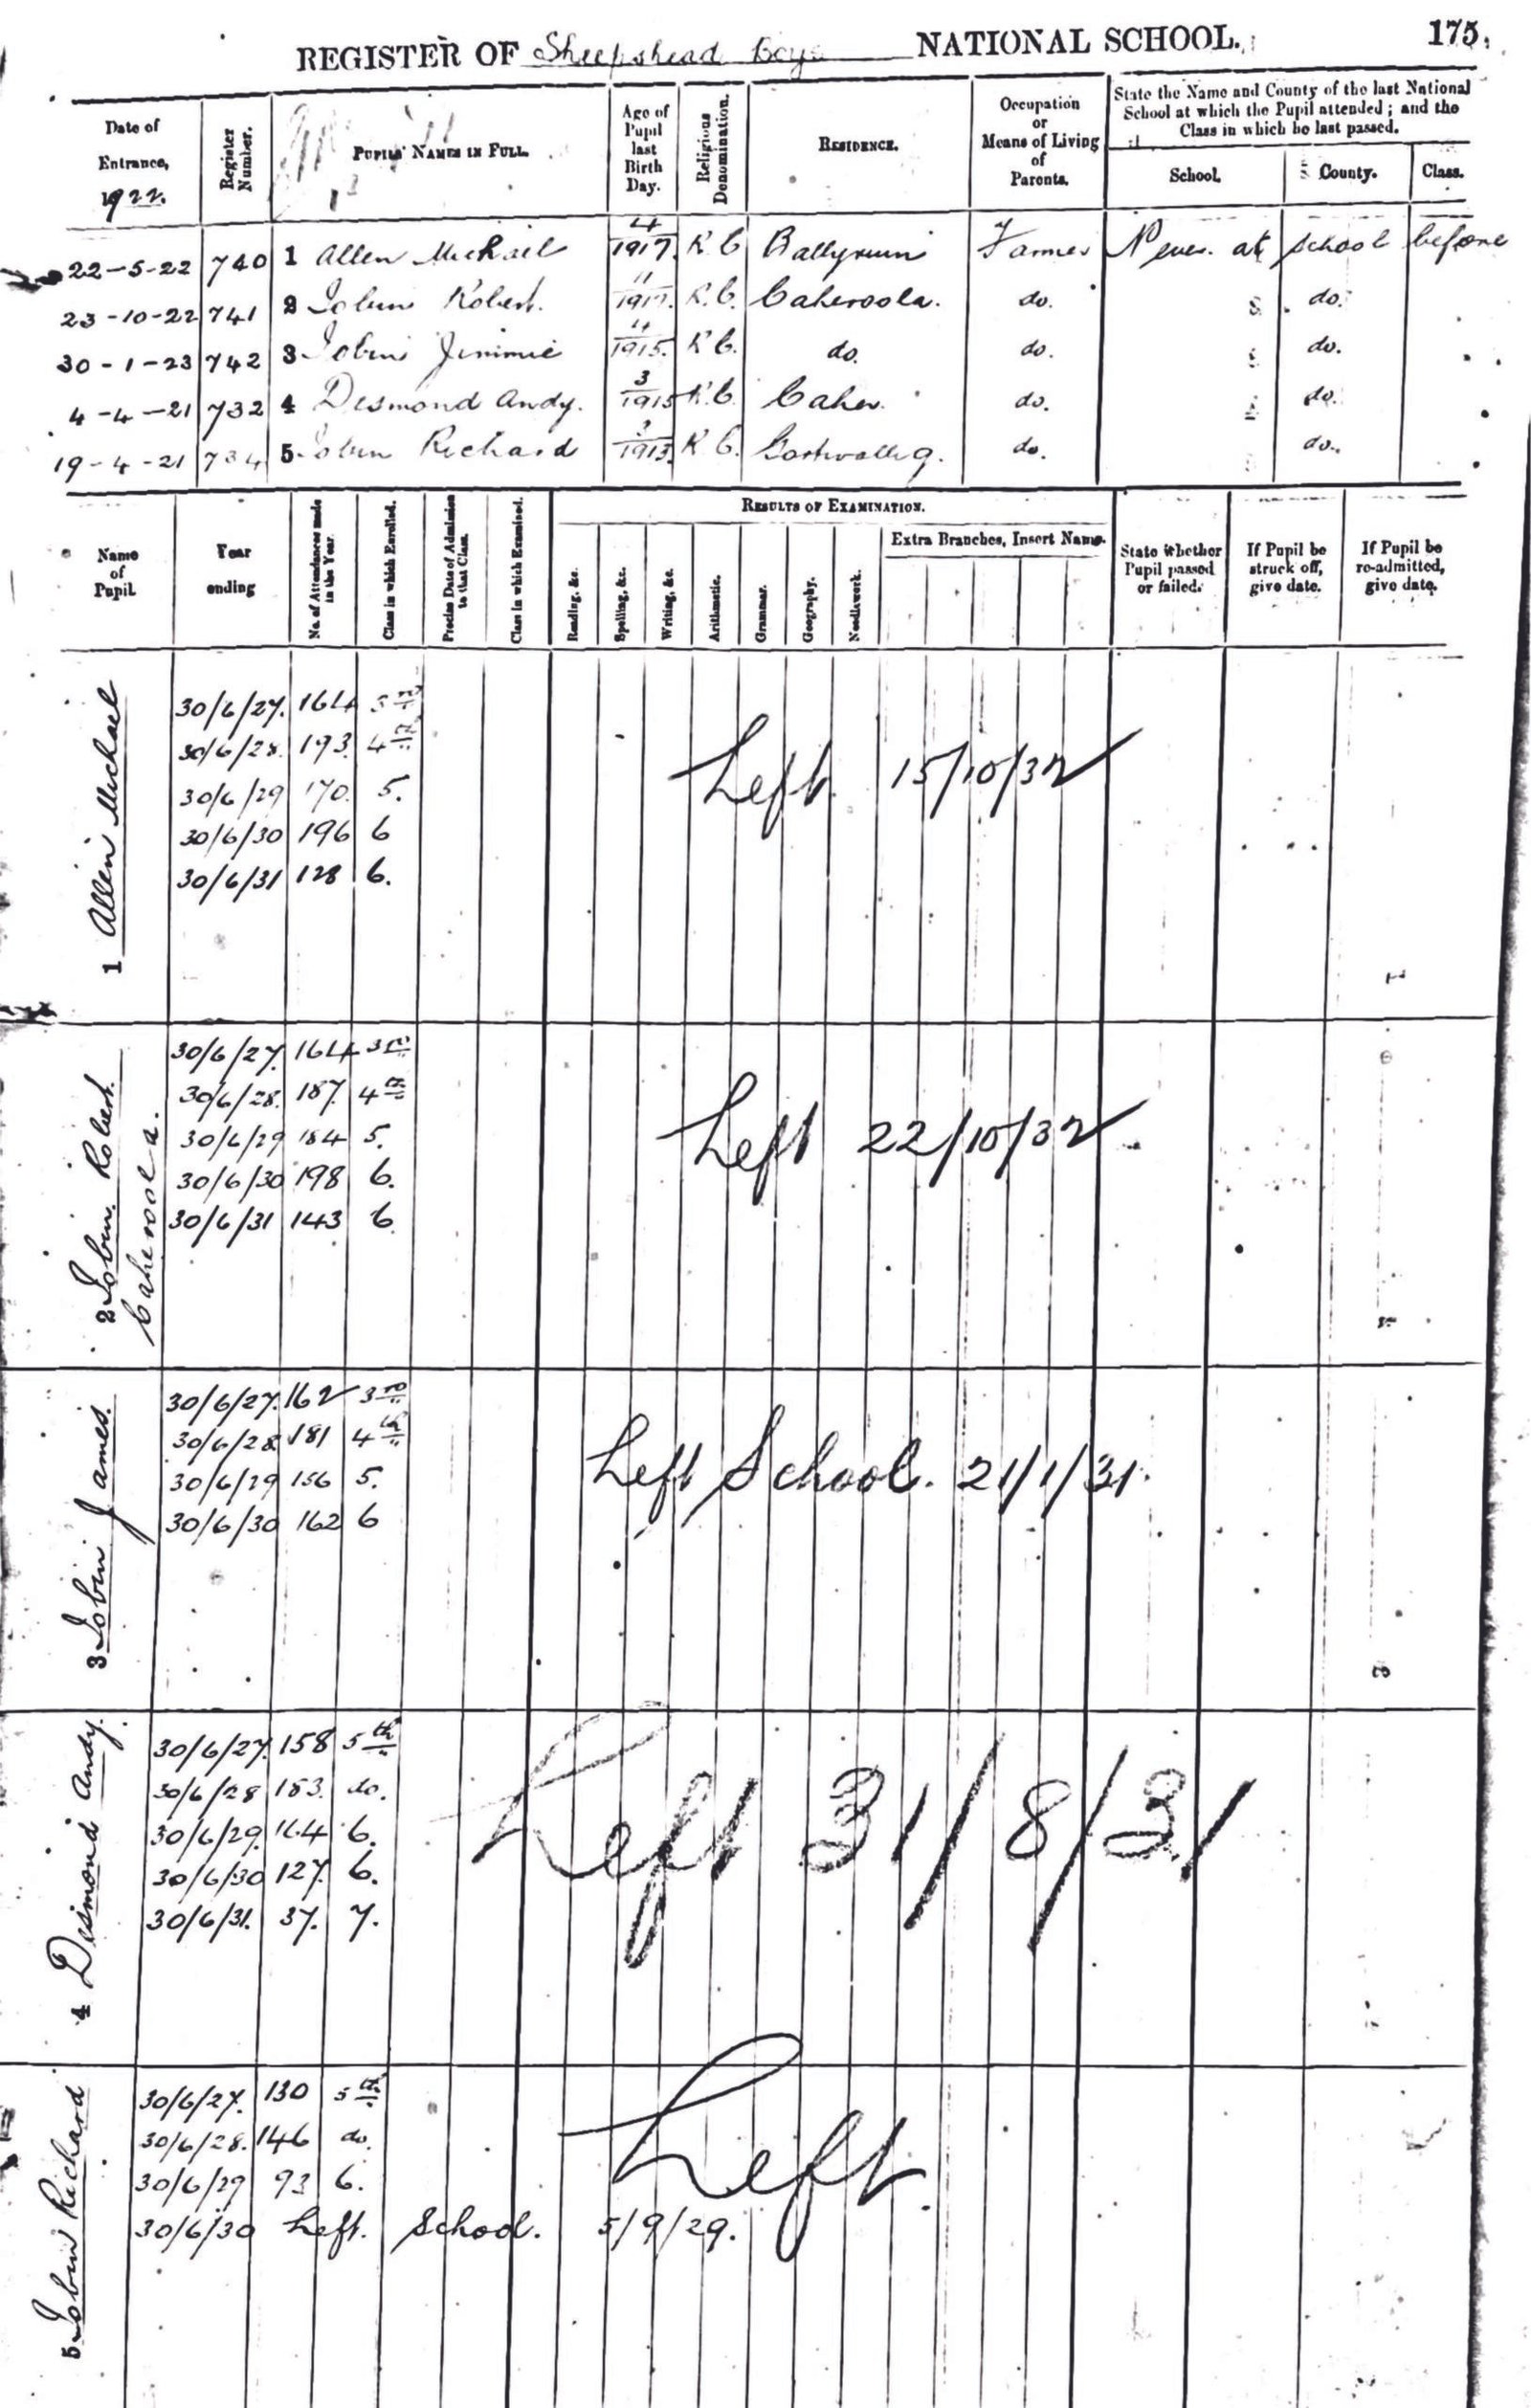 REGISTER OF Sheepshead Boys NATIONAL SCHOOL. 175.
Date of Entrance, 1922. Register Number. PUPILS' NAMES IN FULL. Age of Pupil last Birth Day. Religious Denomination. RESIDENCE. Occupation or Means of Living of Parents. State the Name and County of the last National School at which the Pupil attended; and the Class in which he last passed.
School. County. Class.
22-5-22 740 1 Allen Michael 4/1917. R C Ballyruin Farmer Never at school before
23-10-22 741 2 Tobin Robert. 11/1917. R.C. Caheroola. do. do.
30-1-23 742 3 Tobin Jimmie 4/1915. R C. do. do. do.
4-4-21 732 4 Desmond Andy. 3/1915 R.C. Caher. do. do.
19-4-21 734 5 Tobin Richard 1913. R C. do. do.
Name of Pupil. Year ending No. of Attendances made in the Year. Class in which Enrolled. Precise Date of Admission to that Class. Class in which Examined. RESULTS OF EXAMINATION. State whether Pupil passed or failed. If Pupil be struck off, give date. If Pupil be re-admitted, give date.
Reading, &c. Spelling, &c. Writing, &c. Arithmetic. Grammar. Geography. Needlework. Extra Branches, Insert Name.
1 Allen Michael
30/6/27. 164 3rd
30/6/28. 193. 4th
30/6/29 170. 5.
30/6/30 196 6
30/6/31 128 6.
Left 15/10/32
2 Tobin Robert.
Caheroola.
30/6/27. 164 3rd
30/6/28. 187. 4th
30/6/29 184 5.
30/6/30 198 6.
30/6/31 143 6
Left 22/10/32
3 Tobin James.
30/6/27. 162 3rd
30/6/28 181 4th
30/6/29 156 5.
30/6/30 162 6
Left School. 21/1/31.
4 Desmond Andy.
30/6/27. 158 5th
30/6/28 183. do.
30/6/29. 164 6.
30/6/30 127. 6.
30/6/31. 37. 7.
Left 31/8/31
5 Tobin Richard
30/6/27. 130 5th
30/6/28. 146 do.
30/6/29 93 6.
30/6/30 Left. School. 5/9/29.
Left